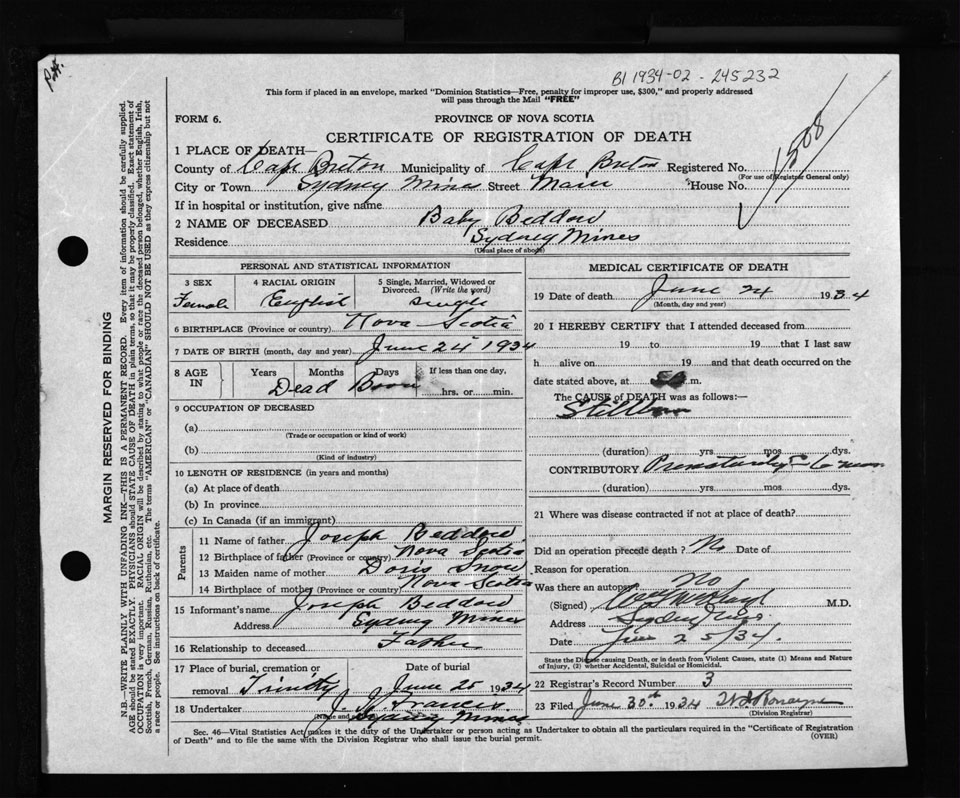 BI 1934-02-245232
This form if placed in an envelope, marked "Dominion Statistics—Free, penalty for improper use, $300," and properly addressed
will pass through the Mail "FREE"
FORM 6.
PROVINCE OF NOVA SCOTIA
CERTIFICATE OF REGISTRATION OF DEATH
1508
1 PLACE OF DEATH—
County of Cape Breton Municipality of Cape Breton Registered No.
(For use of Registrar General only)
City or Town Sydney Mines Street Main House No.
If in hospital or institution, give name
2 NAME OF DECEASED Baby Beddow
Residence Sydney Mines
(Usual place of abode)
PERSONAL AND STATISTICAL INFORMATION
3 SEX Female
4 RACIAL ORIGIN English
5 Single, Married, Widowed or Divorced. (Write the word) Single
6 BIRTHPLACE (Province or country) Nova Scotia
7 DATE OF BIRTH (month, day and year) June 24 1934
8 AGE IN Years Months Days If less than one day, hrs. or min.
Dead Born
9 OCCUPATION OF DECEASED
(a)
(Trade or occupation or kind of work)
(b)
(Kind of industry)
10 LENGTH OF RESIDENCE (in years and months)
(a) At place of death
(b) In province
(c) In Canada (if an immigrant)
Parents
11 Name of father Joseph Beddow
12 Birthplace of father (Province or country) Nova Scotia
13 Maiden name of mother Doris Snow
14 Birthplace of mother (Province or country) Nova Scotia
15 Informant's name Joseph Beddow
Address Sydney Mines
16 Relationship to deceased Father
17 Place of burial, cremation or removal Trinity
Date of burial June 25 1934
18 Undertaker J. J. Francis
Sydney Mines
MEDICAL CERTIFICATE OF DEATH
19 Date of death June 24 1934
(Month, day and year)
20 I HEREBY CERTIFY that I attended deceased from
19 to 19 that I last saw
h alive on 19 and that death occurred on
date stated above, at m.
The CAUSE of DEATH was as follows:—
Stillborn
(duration) yrs. mos. dys.
CONTRIBUTORY Prematurity
(duration) yrs. mos. dys.
21 Where was disease contracted if not at place of death?
Did an operation precede death? No Date of
Reason for operation
Was there an autopsy No
(Signed) M.D.
Address Sydney Mines
Date June 25/34.
State the Disease causing Death, or in death from Violent Causes, state (1) Means and
Nature of Injury, (2) whether Accidental, Suicidal or Homicidal.
22 Registrar's Record Number 3
23 Filed June 30th 1934
(Division Registrar)
Sec. 46—Vital Statistics Act makes it the duty of the Undertaker or person acting as Undertaker to obtain all the particulars required in the "Certificate of Registration
of Death" and to file the same with the Division Registrar who shall issue the burial permit.
(OVER)
MARGIN RESERVED FOR BINDING
N.B.—WRITE PLAINLY WITH UNFADING INK—THIS IS A PERMANENT RECORD. Every item of information should be carefully supplied.
AGE should be stated EXACTLY. PHYSICIANS should STATE CAUSE OF DEATH in plain terms, so that it may be properly classified. Exact statement of
OCCUPATION is very important. RACIAL ORIGIN will be described by stating to what people or race the deceased person belonged, whether English, Irish,
Scottish, French, German, Russian, Ruthenian, etc. The terms "AMERICAN" or "CANADIAN" SHOULD NOT BE USED as they express citizenship but not
a race or people. See instructions on back of certificate.